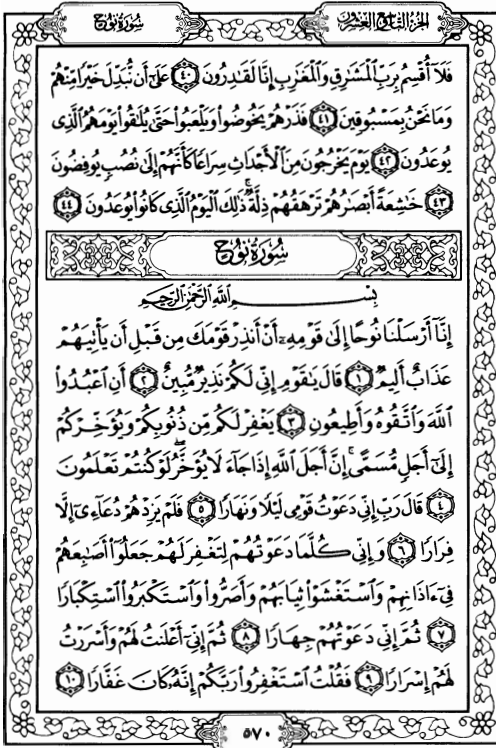 الجزء التاسع والعشرون سورة نوح
فَلَآ أُقْسِمُ بِرَبِّ ٱلْمَشَٰرِقِ وَٱلْمَغَٰرِبِ إِنَّا لَقَٰدِرُونَ ﴿٤٠﴾ عَلَىٰٓ أَن نُّبَدِّلَ خَيْرًا مِّنْهُمْ
وَمَا نَحْنُ بِمَسْبُوقِينَ ﴿٤١﴾ فَذَرْهُمْ يَخُوضُوا۟ وَيَلْعَبُوا۟ حَتَّىٰ يُلَٰقُوا۟ يَوْمَهُمُ ٱلَّذِى
يُوعَدُونَ ﴿٤٢﴾ يَوْمَ يَخْرُجُونَ مِنَ ٱلْأَجْدَاثِ سِرَاعًا كَأَنَّهُمْ إِلَىٰ نُصُبٍ يُوفِضُونَ
﴿٤٣﴾ خَٰشِعَةً أَبْصَٰرُهُمْ تَرْهَقُهُمْ ذِلَّةٌ ۚ ذَٰلِكَ ٱلْيَوْمُ ٱلَّذِى كَانُوا۟ يُوعَدُونَ ﴿٤٤﴾
سُورَةُ نُوحٍ
بِسْمِ ٱللَّهِ ٱلرَّحْمَٰنِ ٱلرَّحِيمِ
إِنَّآ أَرْسَلْنَا نُوحًا إِلَىٰ قَوْمِهِۦٓ أَنْ أَنذِرْ قَوْمَكَ مِن قَبْلِ أَن يَأْتِيَهُمْ
عَذَابٌ أَلِيمٌ ﴿١﴾ قَالَ يَٰقَوْمِ إِنِّى لَكُمْ نَذِيرٌ مُّبِينٌ ﴿٢﴾ أَنِ ٱعْبُدُوا۟
ٱللَّهَ وَٱتَّقُوهُ وَأَطِيعُونِ ﴿٣﴾ يَغْفِرْ لَكُم مِّن ذُنُوبِكُمْ وَيُؤَخِّرْكُمْ
إِلَىٰٓ أَجَلٍ مُّسَمًّى ۚ إِنَّ أَجَلَ ٱللَّهِ إِذَا جَآءَ لَا يُؤَخَّرُ ۖ لَوْ كُنتُمْ تَعْلَمُونَ
﴿٤﴾ قَالَ رَبِّ إِنِّى دَعَوْتُ قَوْمِى لَيْلًا وَنَهَارًا ﴿٥﴾ فَلَمْ يَزِدْهُمْ دُعَآءِىٓ إِلَّا
فِرَارًا ﴿٦﴾ وَإِنِّى كُلَّمَا دَعَوْتُهُمْ لِتَغْفِرَ لَهُمْ جَعَلُوٓا۟ أَصَٰبِعَهُمْ
فِىٓ ءَاذَانِهِمْ وَٱسْتَغْشَوْا۟ ثِيَابَهُمْ وَأَصَرُّوا۟ وَٱسْتَكْبَرُوا۟ ٱسْتِكْبَارًا
﴿٧﴾ ثُمَّ إِنِّى دَعَوْتُهُمْ جِهَارًا ﴿٨﴾ ثُمَّ إِنِّىٓ أَعْلَنتُ لَهُمْ وَأَسْرَرْتُ
لَهُمْ إِسْرَارًا ﴿٩﴾ فَقُلْتُ ٱسْتَغْفِرُوا۟ رَبَّكُمْ إِنَّهُۥ كَانَ غَفَّارًا ﴿١٠﴾
٥٧٠